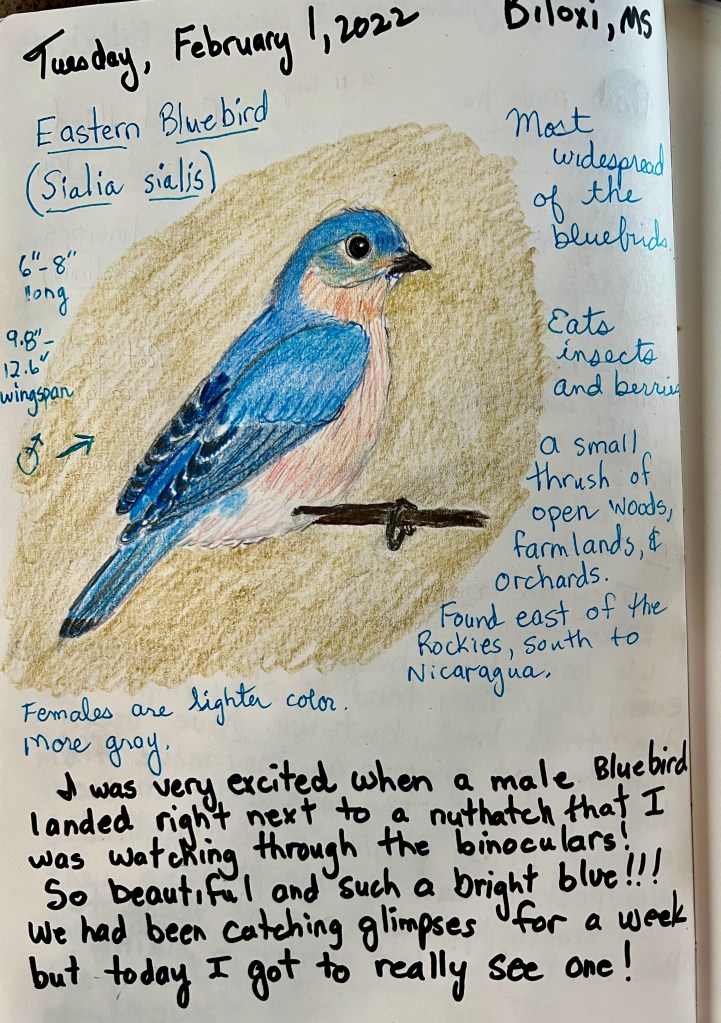 Tuesday, February 1, 2022
Biloxi, MS
Eastern Bluebird
(Sialia sialis)
6"-8"
long
9.8"-
12.6"
wingspan
♂ →
Most
widespread
of the
bluebrids.
Eats
insects
and berries
a small
thrush of
open woods,
farmlands, &
orchards.
Found east of the
Rockies, south to
Nicaragua.
Females are lighter color.
More gray.
I was very excited when a male Bluebird
landed right next to a nuthatch that I
was watching through the binoculars!
So beautiful and such a bright blue!!!
We had been catching glimpses for a week
but today I got to really see one!